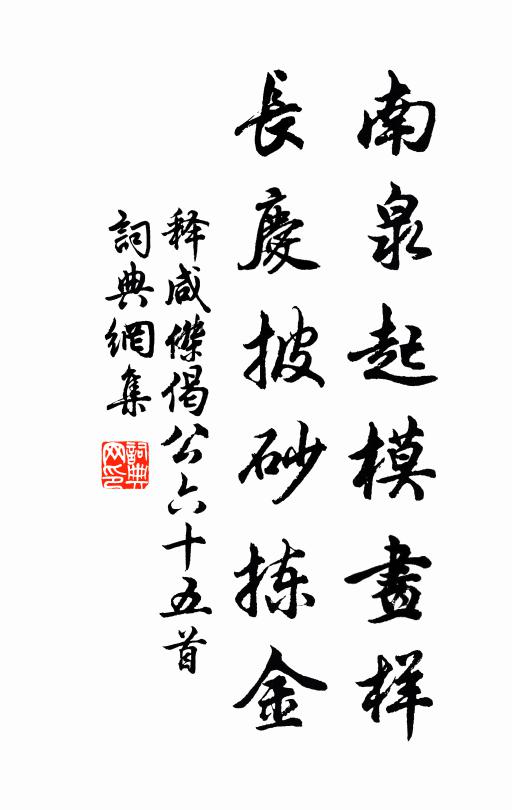 南泉起模畫樣
長慶披砂揀金
释咸傑偈公六十五首
詞典網集
詞典网印